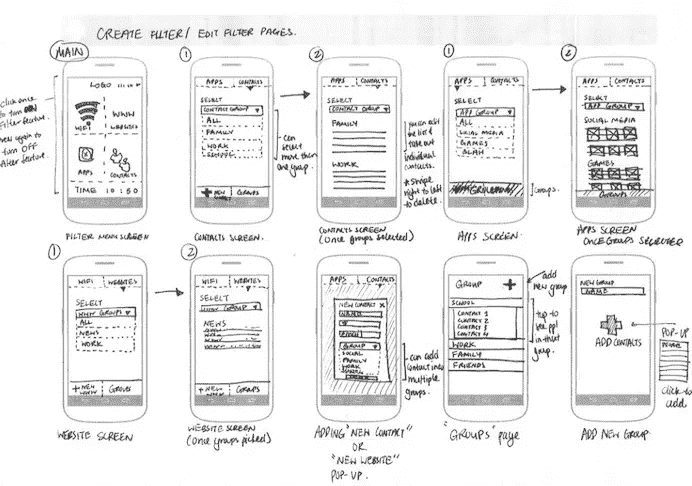 CREATE FILTER/ EDIT FILTER PAGES.
MAIN
click once
to turn ON
Filter feature.
again to
turn OFF
filter feature.
LOGO
WIFI
WWW
WEBSITES
APPS
CONTACTS
TIME 10:50
FILTER MENU SCREEN
1
APPS CONTACTS
SELECT
CONTACT GROUP
ALL
FAMILY
WORK
+ NEW
CONTACT
GROUPS
can
select
more than
one group.
CONTACTS SCREEN.
2
APPS CONTACTS
SELECT
CONTACT GROUP
FAMILY
WORK
you can edit
the list &
take out
individual
contacts.
* Swipe
right to left
to delete.
CONTACTS SCREEN
(Once groups selected)
1
APPS CONTACTS
SELECT
APP GROUP
ALL
SOCIAL MEDIA
GAMES
groups.
APPS SCREEN
2
APPS CONTACTS
SELECT
APP GROUP
SOCIAL MEDIA
GAMES
GROUPS
APPS SCREEN
ONCE GROUPS SELECTED
1
WIFI WEBSITES
SELECT
WWW GROUPS
ALL
NEWS
WORK
+ NEW
WWW
GROUPS
WEBSITE SCREEN
2
WIFI WEBSITES
SELECT
WWW GROUP
NEWS
+ NEW
WWW
GROUPS
WEBSITE SCREEN
(Once groups picked)
APPS CONTACTS
NEW CONTACT X
NAME
GROUP
SOCIAL
FAMILY
WORK
can add
contact into
multiple
groups.
ADDING "NEW CONTACT"
OR
"NEW WEBSITE"
POP-UP.
GROUP +
add
new group
SCHOOL
CONTACT 1
CONTACT 2
CONTACT 3
CONTACT 4
WORK
FAMILY
FRIENDS
tap to
see ppl
in that
group.
"GROUPS" page
NEW GROUP
NAME
ADD CONTACTS
POP-UP
click to
add
ADD NEW GROUP